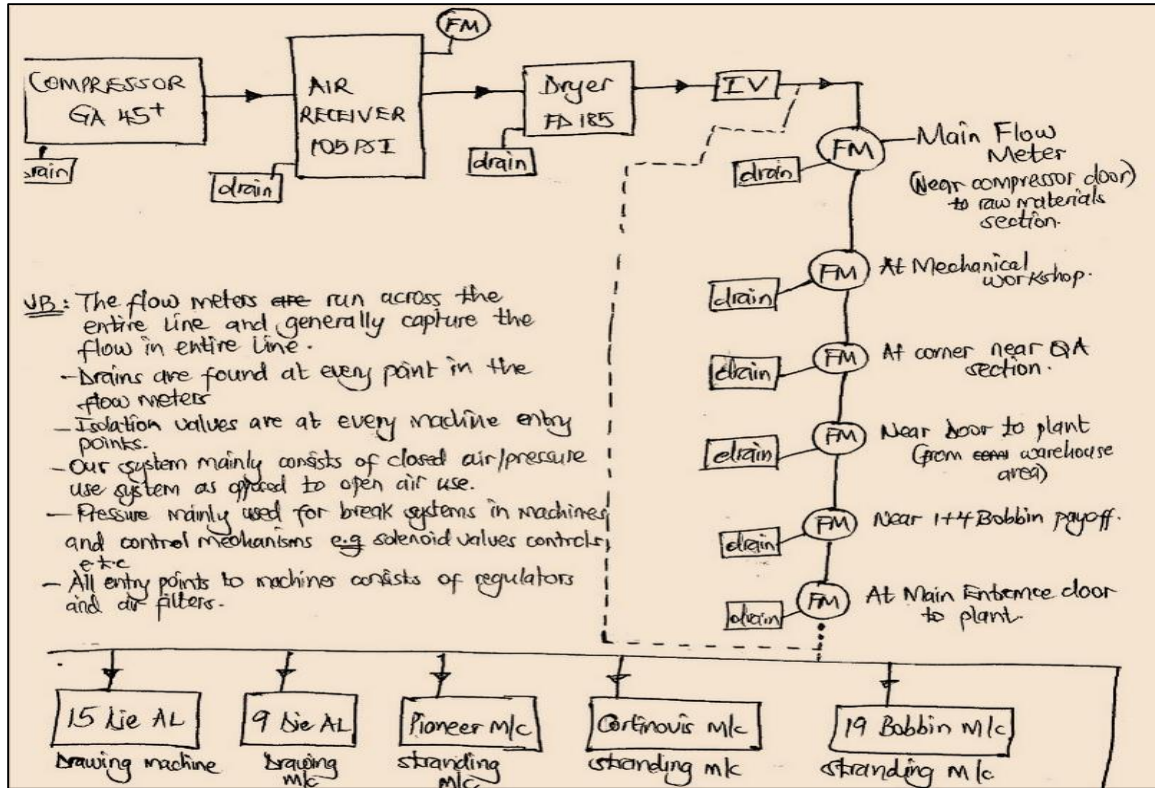 FM
COMPRESSOR
GA 45+
drain
AIR
RECEIVER
105 PSI
drain
Dryer
FD 185
drain
IV
FM
Main Flow
Meter
(Near compressor door)
to raw materials
section.
drain
FM
At Mechanical
workshop.
drain
FM
At corner near QA
section.
drain
FM
Near door to plant
(from warehouse
area)
drain
FM
Near 1+4 Bobbin payoff.
drain
FM
At Main Entrance door
to plant.
drain
NB: The flow meters are run across the
entire line and generally capture the
flow in entire line.
- Drains are found at every point in the
flow meters
- Isolation values are at every machine entry
points.
- Our system mainly consists of closed air/pressure
use system as opposed to open air use.
- Pressure mainly used for break systems in machines
and control mechanisms e.g solenoid values controls
e.t.c
- All entry points to machines consists of regulators
and air filters.
15 Die AL
Drawing machine
9 Die AL
Drawing
M/c
Pioneer M/c
stranding
M/c
Cortinovis M/c
stranding M/c
19 Bobbin M/c
stranding M/c